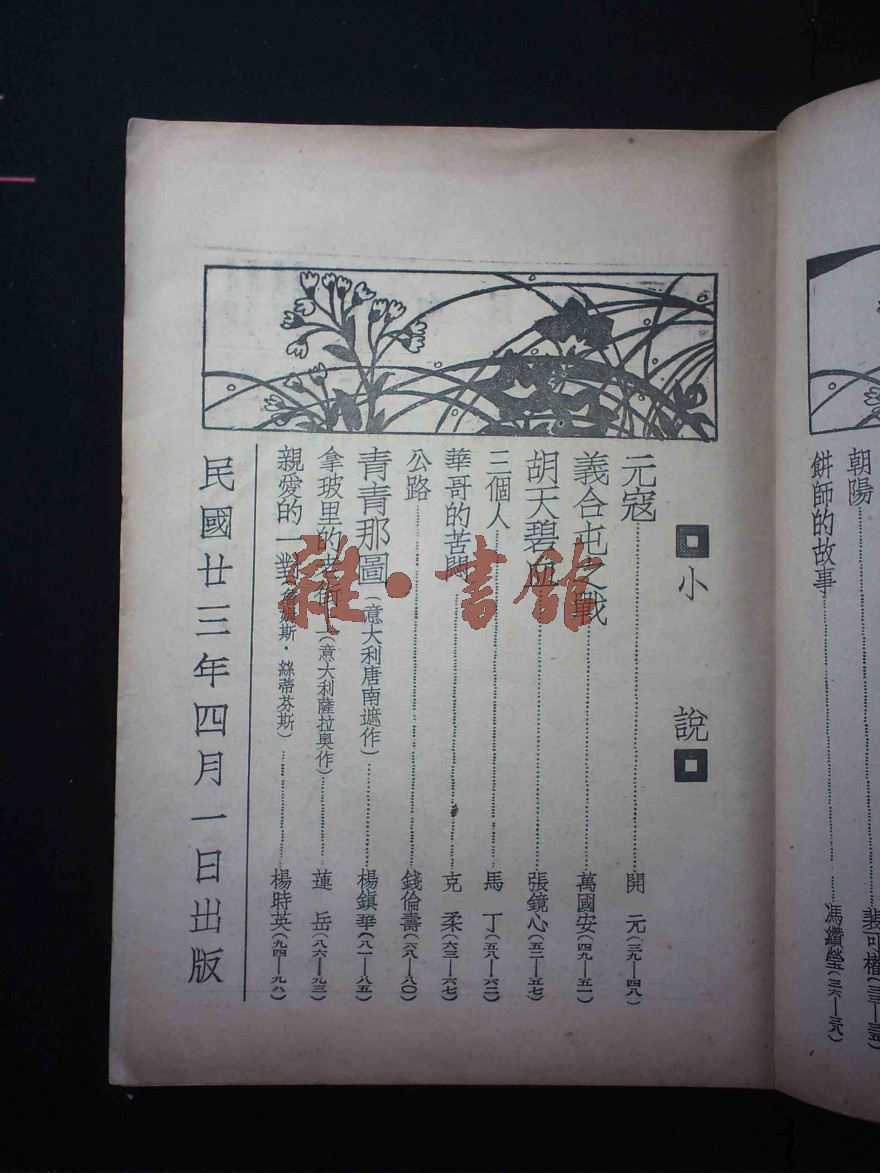 朝陽……裴可權
餅師的故事……馮纘瑩(三六—三八)
小說
元寇……開元(三九—四八)
義合屯之戰……萬國安(四九—五一)
胡天碧血……張鏡心(五二—五七)
三個人……馬丁(五八—六二)
華哥的苦悶……克柔(六三—六七)
公路……錢倫壽(六八—八〇)
青青那圖(意大利唐南遮作)……楊鎮華(八一—八五)
拿玻里的老街(意大利薩拉奧作)……蓮岳(八六—九三)
親愛的一對(詹姆斯·絲蒂芬斯)……楊時英(九四—九八)
民國廿三年四月一日出版
雜·書館